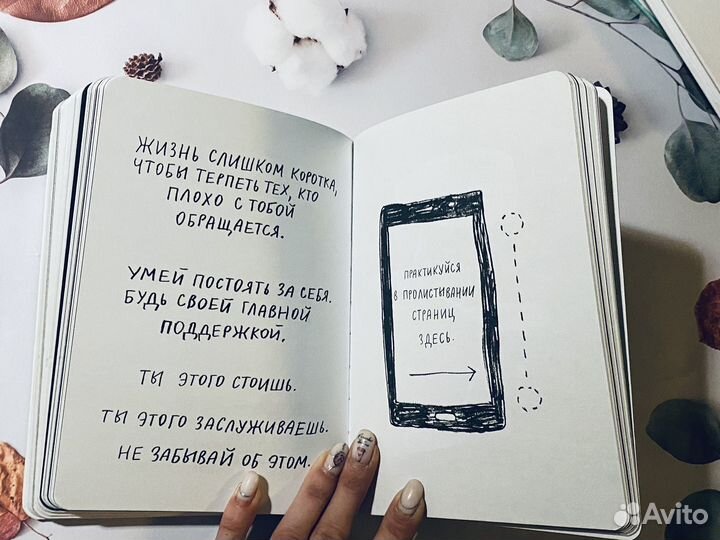 ЖИЗНЬ СЛИШКОМ КОРОТКА,
ЧТОБЫ ТЕРПЕТЬ ТЕХ, КТО
ПЛОХО С ТОБОЙ
ОБРАЩАЕТСЯ.
УМЕЙ ПОСТОЯТЬ ЗА СЕБЯ.
БУДЬ СВОЕЙ ГЛАВНОЙ
ПОДДЕРЖКОЙ.
ТЫ ЭТОГО СТОИШЬ.
ТЫ ЭТОГО ЗАСЛУЖИВАЕШЬ.
НЕ ЗАБЫВАЙ ОБ ЭТОМ.
ПРАКТИКУЙСЯ
В ПРОЛИСТЫВАНИИ
СТРАНИЦ
ЗДЕСЬ.
Avito